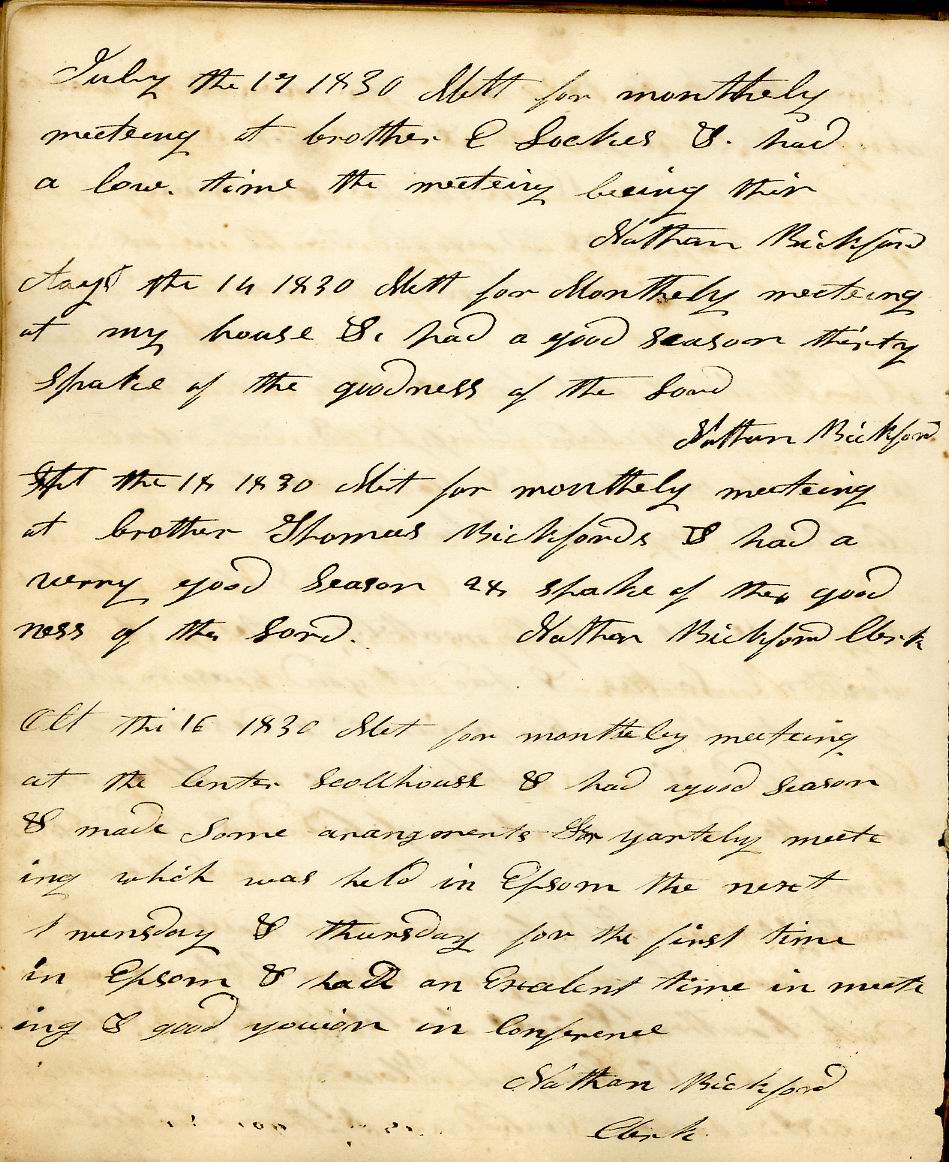 July the 17 1830 Mett for monthely
meeteing at brother C Lockes & had
a low. time the meeteing beeing thin
Nathan Bickford
Augt the 14 1830 Mett for Monthely meeteing
at my house & had a good season thirty
spake of the goodness of the Lord
Nathan Bickford
Sept the 18 1830 Met for monthely meeteing
at brother Thomas Bickfords & had a
verry good season 24 spake of the good
ness of the Lord. Nathan Bickford Clerk
Oct the 16 1830 Met for monthely meeteing
at the Center Scollhouse & had a good season
& made some arangments for yartely meete
ing which was held in Epsom the next
wensday & thursday for the first time
in Epsom & had an Excelent time in meete
ing & good youion in Conference
Nathan Bickford
Clerk